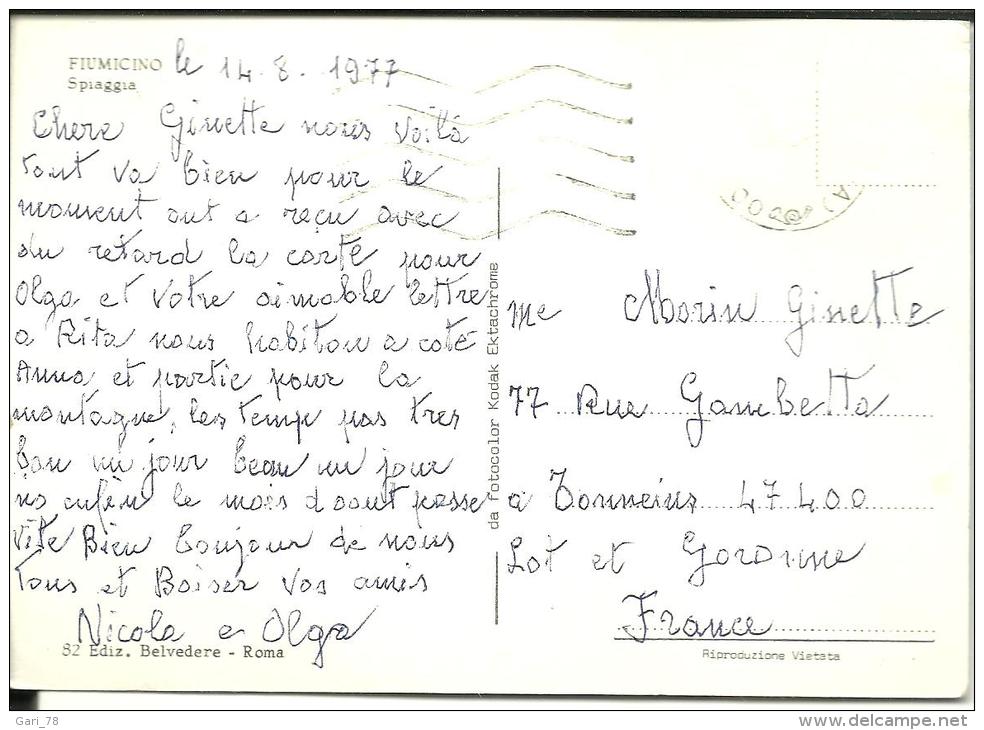 FIUMICINO le 14.8.1977
Spiaggia
Chere Ginette nous voilà
tout va bien pour le
moment ont a reçu avec
du retard la carte pour
Olga et votre aimable lettre
a Rita nous habiton a coté
Anna et partie pour la
montagne, les temp pas tres
bon un jour beau un jour
no enfin le mois d aout passe
vite Bien bonjour de nous
tous et Baiser vos amis
Nicola e Olga
82 Ediz. Belvedere - Roma
da fotocolor Kodak Ektachrome
me Morin Ginette
77 Rue Gambetta
a Tonneins 47400
Lot et Goronne
France
Riproduzione Vietata
Gari_78
www.delcampe.net